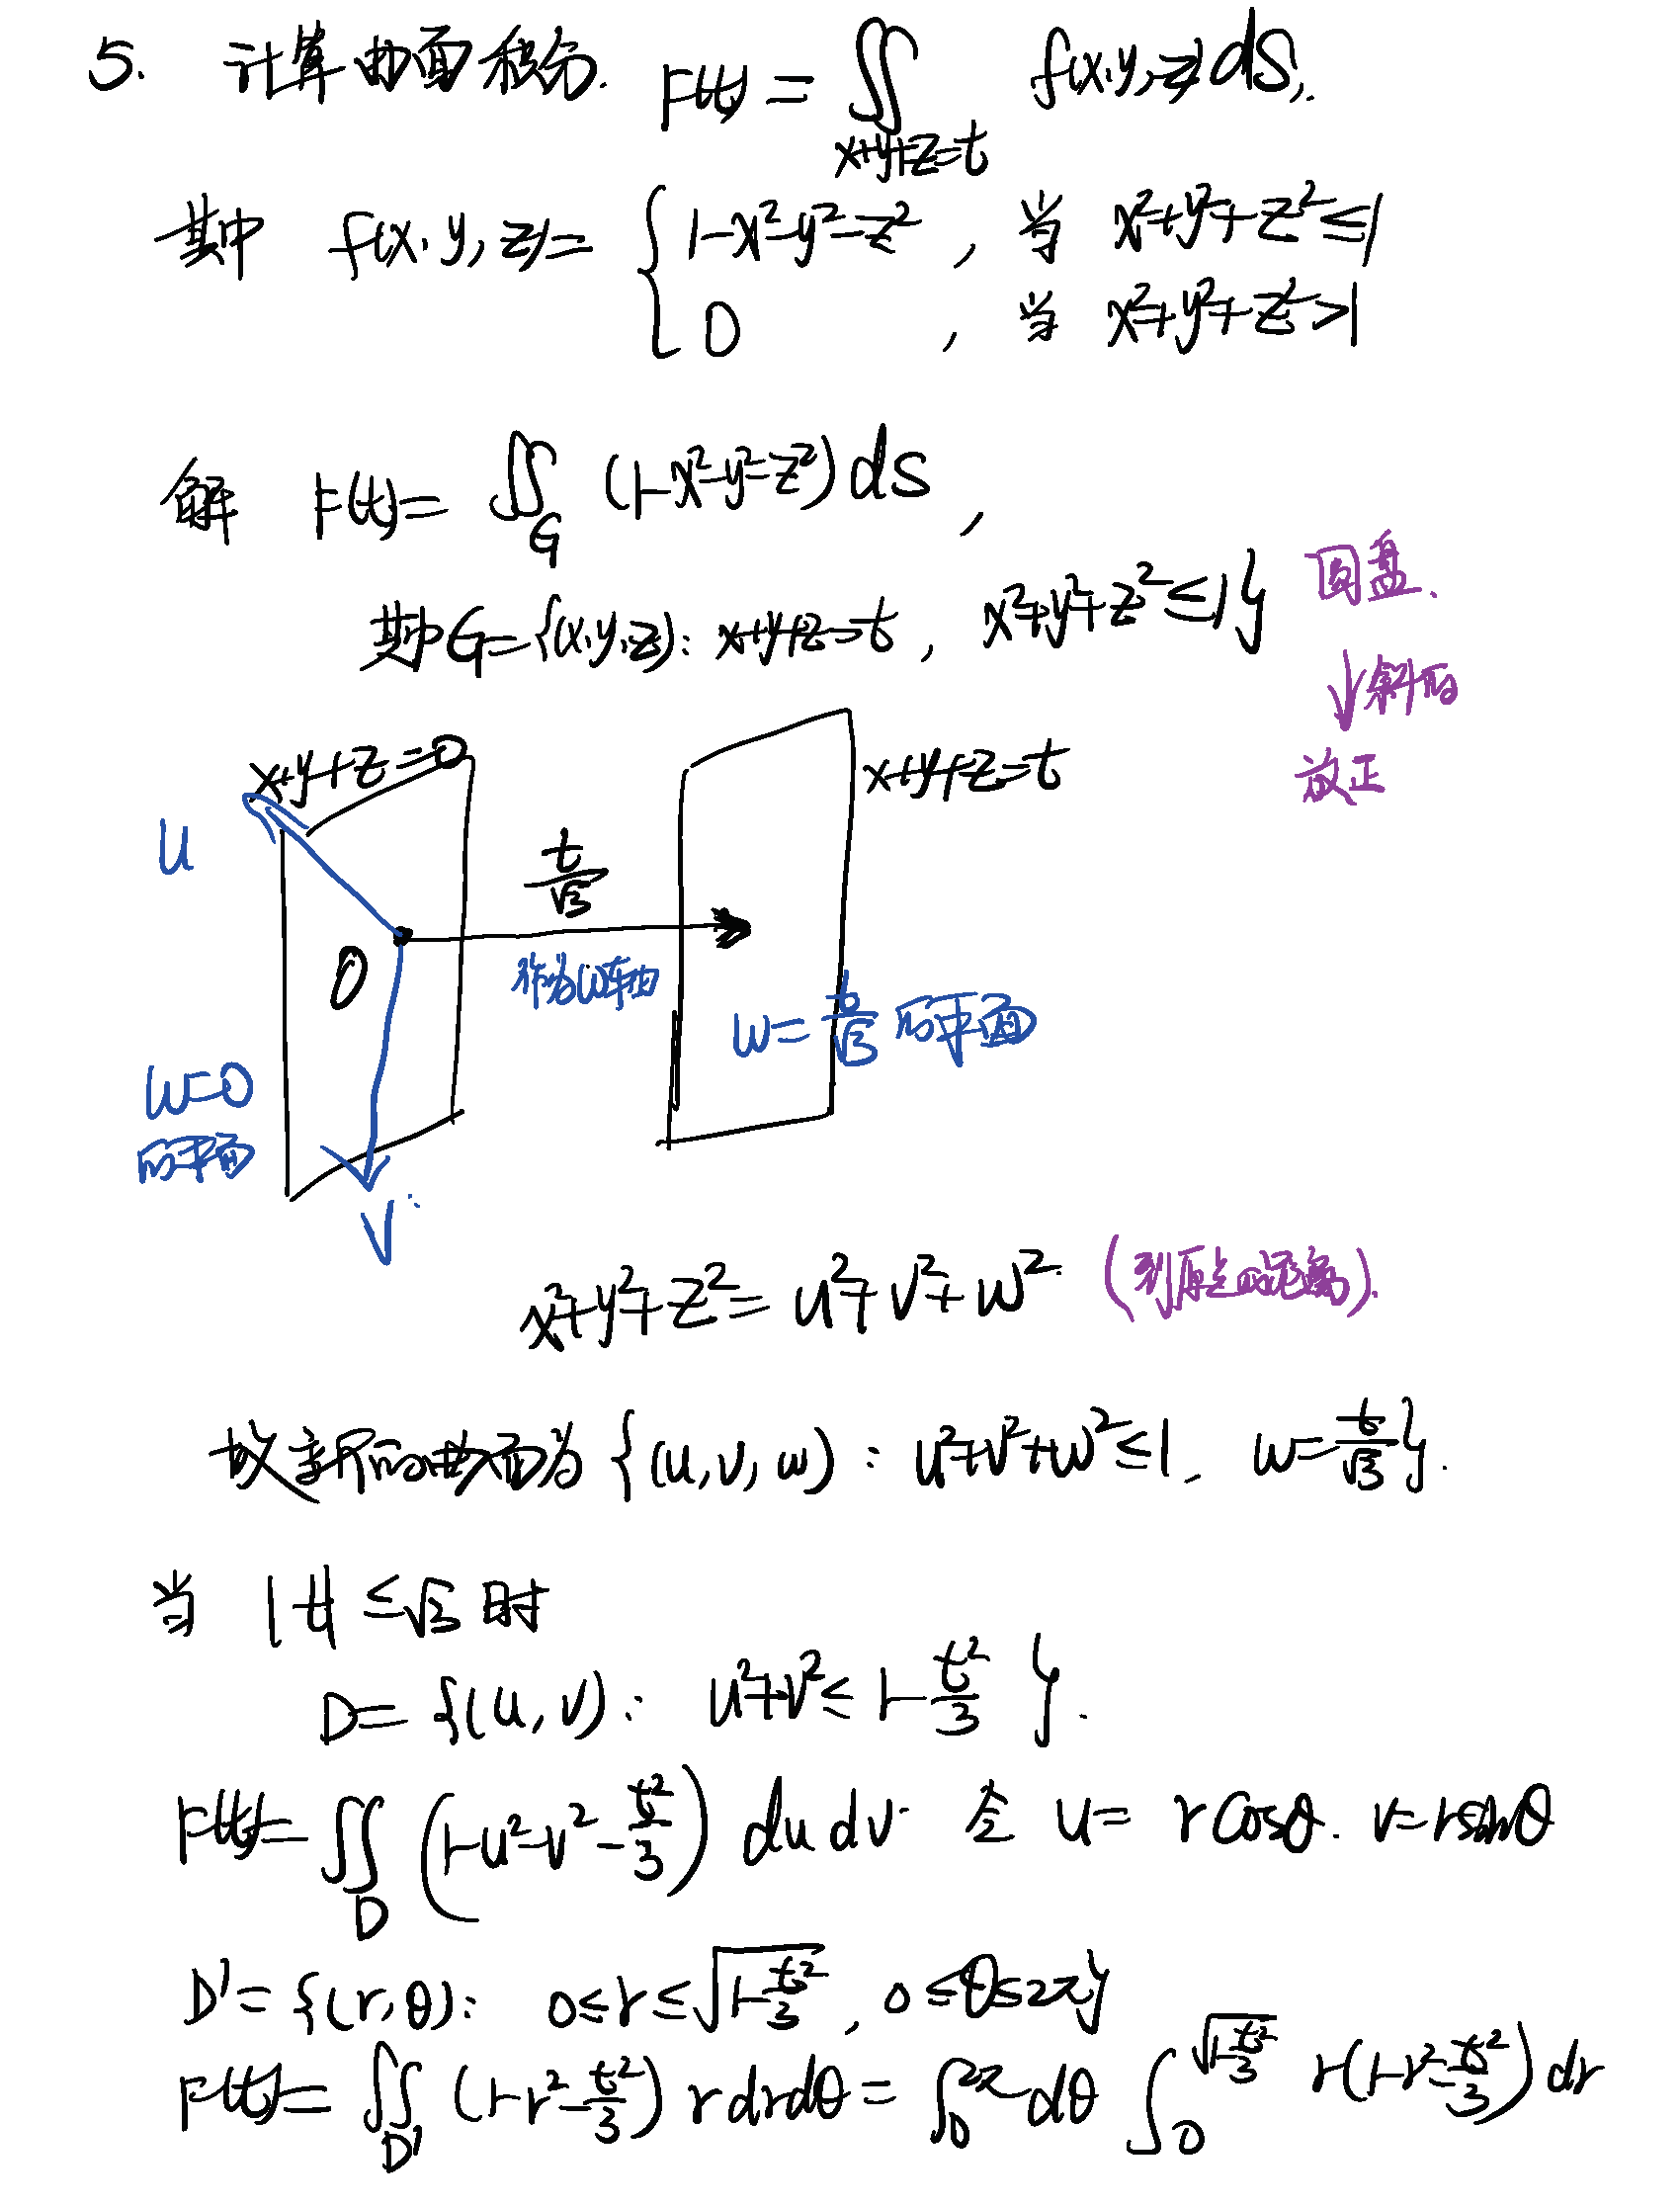 5. 计算曲面积分. F(t) = ∬_{x+y+z=t} f(x,y,z) dS,.
其中 f(x,y,z) = { 1-x²-y²-z² , 当 x²+y²+z² ≤ 1
0 , 当 x²+y²+z² > 1
解 F(t) = ∬_G (1-x²-y²-z²) dS ,
其中 G = {(x,y,z): x+y+z=t , x²+y²+z² ≤ 1}
圆盘.
↓斜的
放正
x+y+z=0
x+y+z=t
u
t/√3
O
作为w轴
w=t/√3 的平面
w=0
的平面
v
x²+y²+z² = u²+v²+w² (到原点的距离).
故新的曲面为 {(u,v,w) : u²+v²+w² ≤ 1, w=t/√3}.
当 |t| ≤ √3 时
D = {(u,v): u²+v² ≤ 1-t²/3 }.
F(t) = ∬_D (1-u²-v²-t²/3) du dv. 令 u = r cosθ. v=r sinθ
D' = {(r,θ): 0≤r≤√(1-t²/3) , 0≤θ≤2π}
F(t) = ∬_{D'} (1-r²-t²/3) r dr dθ = ∫_0^{2π} dθ ∫_0^{√(1-t²/3)} r(1-r²-t²/3) dr